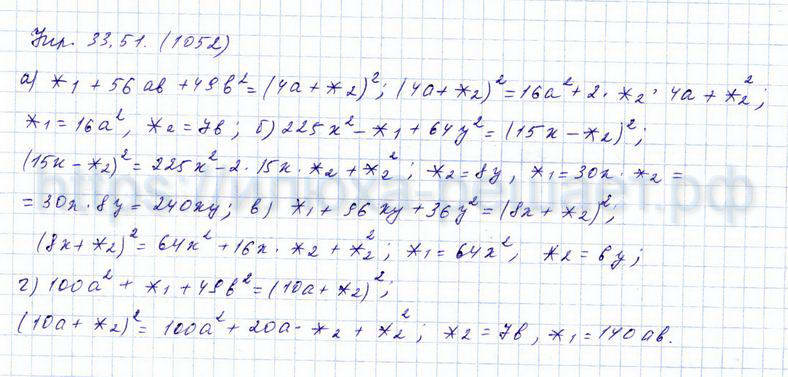 Упр. 33.51. (1052)
а) *₁ + 56ab + 49b² = (4a + *₂)²; (4a + *₂)² = 16a² + 2 · *₂ · 4a + *₂²;
*₁ = 16a², *₂ = 7b; б) 225x² - *₁ + 64y² = (15x - *₂)²;
(15x - *₂)² = 225x² - 2 · 15x · *₂ + *₂²; *₂ = 8y, *₁ = 30x · *₂ =
= 30x · 8y = 240xy; в) *₁ + 96xy + 36y² = (8x + *₂)²;
(8x + *₂)² = 64x² + 16x · *₂ + *₂²; *₁ = 64x², *₂ = 6y;
г) 100a² + *₁ + 49b² = (10a + *₂)²;
(10a + *₂)² = 100a² + 20a · *₂ + *₂²; *₂ = 7b, *₁ = 140ab.